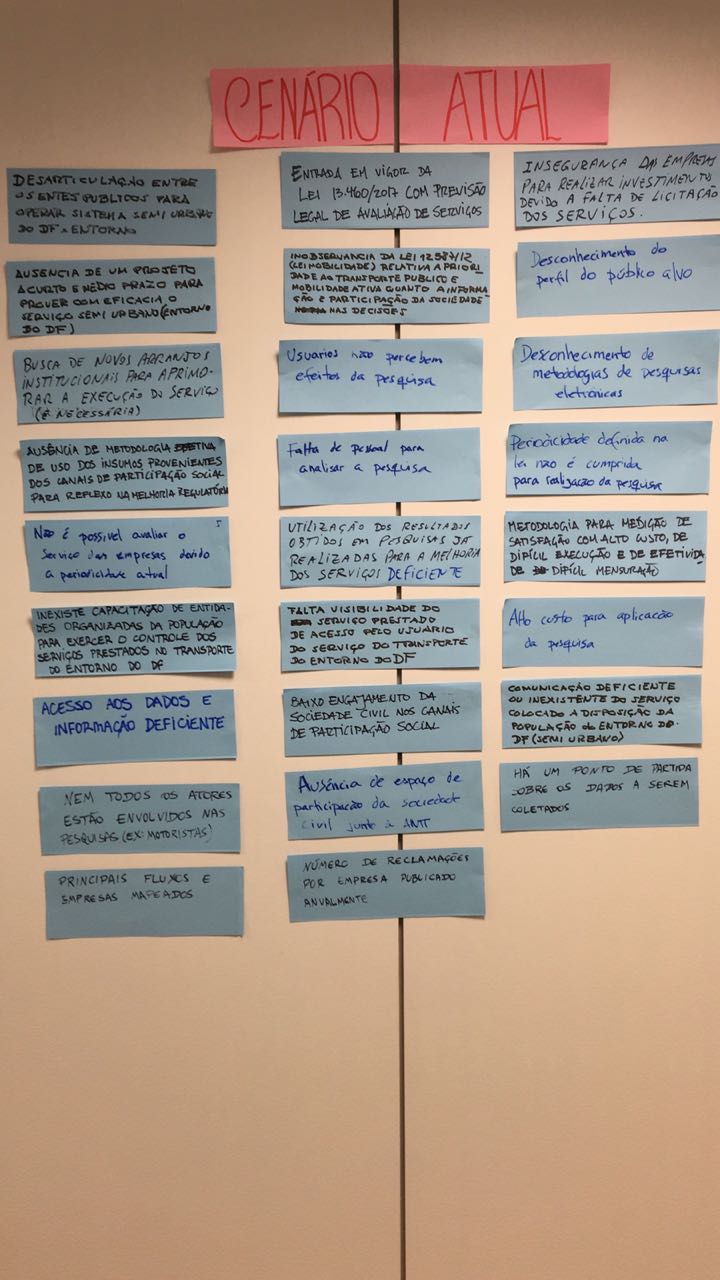 CENÁRIO ATUAL
DESARTICULAÇÃO ENTRE
OS ENTES PÚBLICOS PARA
OPERAR SISTEMA SEMI URBANO
DO DF E ENTORNO
AUSÊNCIA DE UM PROJETO
A CURTO E MÉDIO PRAZO PARA
PROVER COM EFICACIA O
SERVIÇO SEMI URBANO (ENTORNO
DO DF)
BUSCA DE NOVOS ARRANJOS
INSTITUCIONAIS PARA APRIMO-
RAR A EXECUÇÃO DO SERVIÇO
(É NECESSÁRIA)
AUSÊNCIA DE METODOLOGIA EFETIVA
DE USO DOS INSUMOS PROVENIENTES
DOS CANAIS DE PARTICIPAÇÃO SOCIAL
PARA REFLEXO NA MELHORIA REGULATÓRIA
Não é possivel avaliar o
serviço das empresas devido
a periodicidade atual
INEXISTE CAPACITAÇÃO DE ENTIDA-
DES ORGANIZADAS DA POPULAÇÃO
PARA EXERCER O CONTROLE DOS
SERVIÇOS PRESTADOS NO TRANSPORTE
DO ENTORNO DO DF
ACESSO AOS DADOS E
INFORMAÇÃO DEFICIENTE
NEM TODOS OS ATORES
ESTÃO ENVOLVIDOS NAS
PESQUISAS (EX: MOTORISTAS)
PRINCIPAIS FLUXOS E
EMPRESAS MAPEADOS
ENTRADA EM VIGOR DA
LEI 13.460/2017 COM PREVISÃO
LEGAL DE AVALIAÇÃO DE SERVIÇOS
INOBSERVANCIA DA LEI 12587/12
(LEI MOBILIDADE) RELATIVA A PRIORI
DADE AO TRANSPORTE PUBLICO E
MOBILIDADE ATIVA QUANTO A INFORMA
ÇÃO E PARTICIPAÇÃO DA SOCIEDADE
NAS DECISÕES
Usuarios não percebem
efeitos da pesquisa
Falta de pessoal para
analisar a pesquisa
UTILIZAÇÃO DOS RESULTADOS
OBTIDOS EM PESQUISAS JÁ
REALIZADAS PARA A MELHORIA
DOS SERVIÇOS DEFICIENTE
FALTA VISIBILIDADE DO
SERVIÇO PRESTADO
DE ACESSO PELO USUÁRIO
DO SERVIÇO DO TRANSPORTE
DO ENTORNO DO DF
BAIXO ENGAJAMENTO DA
SOCIEDADE CIVIL NOS CANAIS
DE PARTICIPAÇÃO SOCIAL
Ausência de espaço de
participação da sociedade
civil junto à ANTT
NÚMERO DE RECLAMAÇÕES
POR EMPRESA PUBLICADO
ANUALMENTE
INSEGURANÇA DAS EMPRESAS
PARA REALIZAR INVESTIMENTO
DEVIDO A FALTA DE LICITAÇÃO
DOS SERVIÇOS.
Desconhecimento do
perfil do público alvo
Desconhecimento de
metodologias de pesquisas
eletrônicas
Periodicidade definida na
lei não é cumprida
para realização da pesquisa
METODOLOGIA PARA MEDIÇÃO DE
SATISFAÇÃO COM ALTO CUSTO, DE
DIFÍCIL EXECUÇÃO E DE EFETIVIDA-
DE DIFÍCIL MENSURAÇÃO
Alto custo para aplicação
da pesquisa
COMUNICAÇÃO DEFICIENTE
OU INEXISTENTE DO SERVIÇO
COLOCADO A DISPOSIÇÃO DA
POPULAÇÃO do ENTORNO DO
DF (SEMI URBANO)
HÁ UM PONTO DE PARTIDA
SOBRE OS DADOS A SEREM
COLETADOS